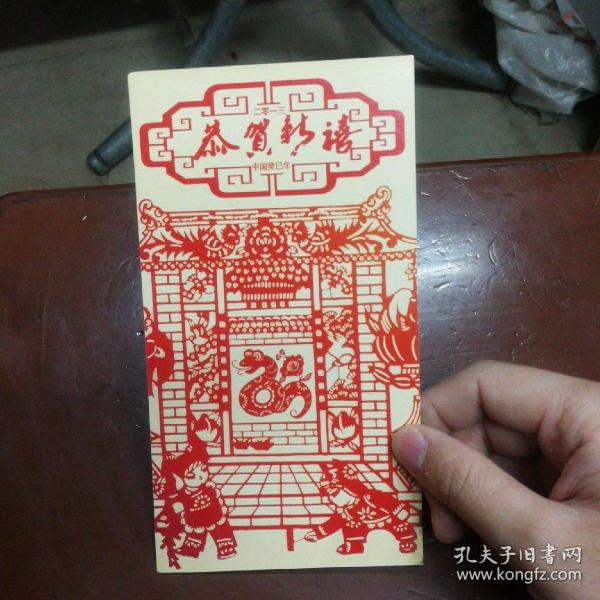 二零一三
恭贺新禧
中国癸巳年
孔夫子旧书网
www.kongfz.com